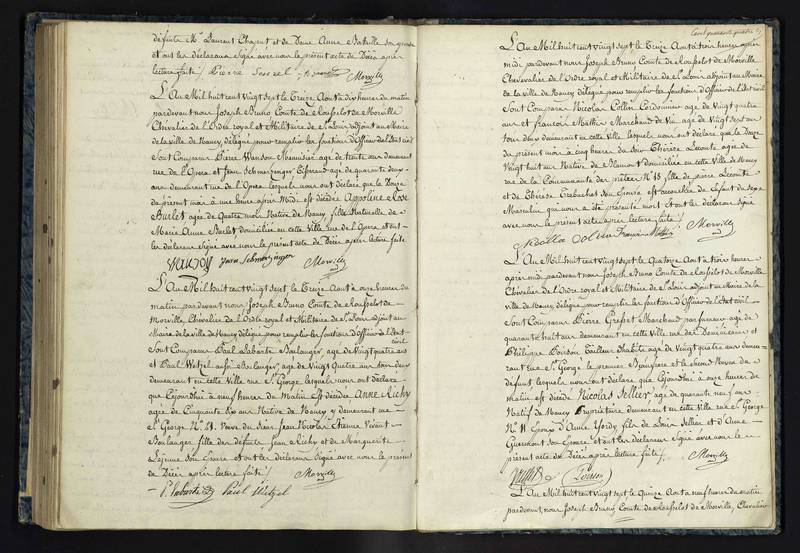 défunte Mr. Laurent Chaput et de Dame Anne Bataille son épouse
et ont les déclarans signé avec nous le présent acte de Décès après
lecture faite / Pierre Morville
L'An Mil huit cent vingt sept le Treize Août à dix heures du matin
pardevant nous Joseph Bruno Comte de Rousselot de Morville
Chevalier de l'Ordre royal et Militaire de St Louis adjoint au Maire
de la ville de Nancy délégué pour remplir les fonctions d'Officier de l'Etat civil
Sont Comparus Pierre Wanson Menuisier agé de trente ans demeurant
rue de l'Opera et Jean Schmerzinger Tisserand agé de quarante deux
ans demeurant rue de l'Opera lesquels nous ont déclaré que le Douze
du présent mois à une heure après Midi est décédée Appoline Rose
Burlet agée de Quatre mois Native de Nancy, fille Naturelle de
Marie Anne Burlet domiciliée en cette Ville rue de l'Opera et ont
les déclarans Signé avec nous le présent acte de Décès après lecture faite
Jean Schmerzinger Morville
L'An Mil huit cent vingt sept le Treize Août à onze heures du
matin pardevant nous Joseph Bruno Comte de Rousselot de
Morville Chevalier de l'Ordre royal et Militaire de St Louis adjoint au
Maire de la ville de Nancy délégué pour remplir les fonctions d'Officier de l'Etat
civil
Sont Comparus Paul Labarte Boulanger, agé de Vingt quatre ans
et Paul Wetzel aussi Boulanger, agé de Vingt Quatre ans tous deux
demeurant en cette Ville rue St George lesquels nous ont déclaré
que Cejourdhui à neuf heures du Matin est décédée Anne Richy
agée de Cinquante six ans Native de Nancy y demeurant rue
St George No. 21 Veuve du Sieur Jean Nicolas Etienne Vivant
Boulanger fille des défunts Jean Richy et de Marguerite
Lejeune son Epouse et ont les déclarans Signé avec nous le présent
acte de Décès après lecture faite / Morville
P. Labarte Paul Wetzel
Cent quarante quatre
L'An Mil huit cent Vingt sept le Treize Août à trois heures après
midi pardevant nous Joseph Bruno Comte de Rousselot de Morville
Chevalier de l'Ordre royal et Militaire de St Louis adjoint au Maire
de la ville de Nancy délégué pour remplir les fonctions d'Officier de l'Etat civil
Sont Comparus Nicolas Collin Cordonnier agé de Vingt quatre
ans et François Mathieu Marchand de Vin agé de Vingt sept ans
tous deux demeurant en cette Ville lesquels nous ont déclaré que le Douze
du présent mois à cinq heures du soir Thérèse Lecomte agée de
Vingt huit ans Native de domiciliée en cette Ville de Nancy
rue de la Communauté des prêtres No. 18 fille de pierre Lecomte
et de Thérèse Trebuchet son Epouse est accouchée d'un Enfant du Sexe
Masculin qui nous a été présenté mort et ont les déclarans signé
avec nous le présent acte après lecture faite /
Nicolas Colin François Morville
L'An Mil huit cent Vingt sept le Quatorze Août à trois heures
après midi pardevant nous Joseph Bruno Comte de Rousselot de Morville
Chevalier de l'Ordre royal et Militaire de St Louis adjoint au Maire de la
ville de Nancy délégué pour remplir les fonctions d'Officier de l'Etat civil
Sont Comparus Pierre Marchand parfumeur agé de
quarante huit ans demeurant en cette Ville rue des Dominicains et
Philippe Poirson Tailleur d'habits agé de Vingt quatre ans demeu-
rant rue St George le premier et le second Neveu du
défunt lesquels nous ont déclaré que Cejourdhui à onze heures du
matin est décédé Nicolas Sellier agé de quarante neuf ans
Natif de Nancy Propriétaire demeurant en cette Ville rue St George
No. 11 Epoux d'Anne Yordy fils de Sellier et d'Anne
son Epouse et ont les déclarans Signé avec nous le
présent acte de Décès après lecture faite / Morville
Poirson
L'An Mil huit cent Vingt sept le Quinze Août à neuf heures du matin
pardevant nous Joseph Bruno Comte de Rousselot de Morville, Chevalier